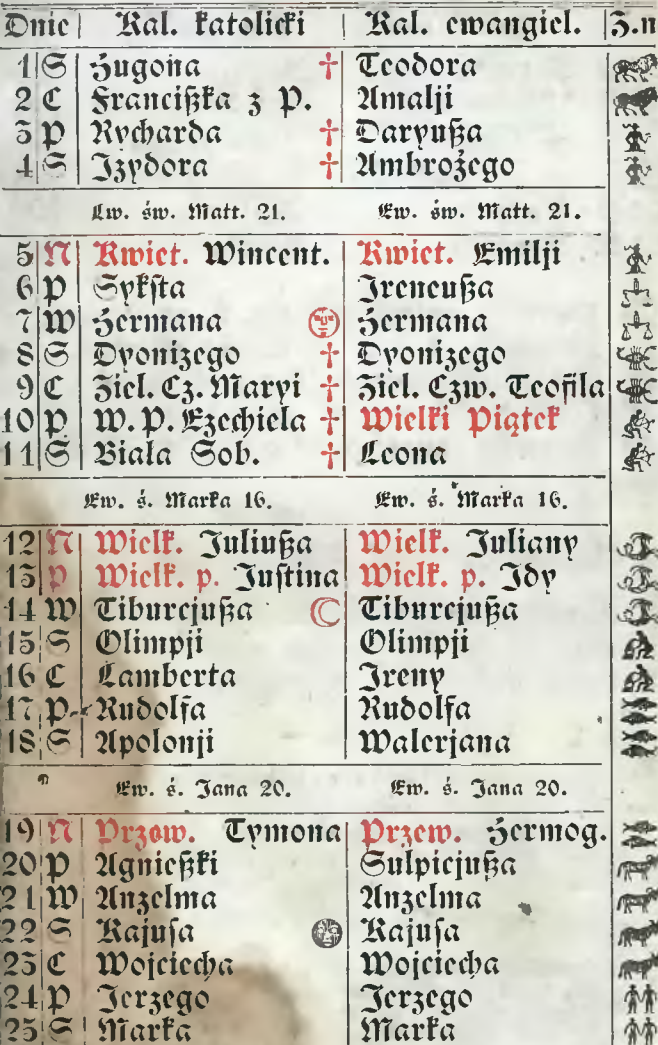 Dnie | Kal. katolicki | Kal. ewangiel. | Z.n
1 S Hugona † Teodora
2 C Franciszka z P. Amalji
3 P Rycharda † Daryusza
4 S Izydora † Ambrożego
Ew. św. Matt. 21. Ew. św. Matt. 21.
5 N Kwiet. Wincent. Kwiet. Emilji
6 P Syksta Ireneusza
7 W Hermana Hermana
8 S Dyonizego † Dyonizego
9 C Ziel. Cz. Maryi † Ziel. Czw. Teofila
10 P W. P. Ezechiela † Wielki Piątek
11 S Biala Sob. † Leona
Ew. ś. Marka 16. Ew. ś. Marka 16.
12 N Wielk. Juliusza Wielk. Juliany
13 P Wielk. p. Justina Wielk. p. Idy
14 W Tiburcjusza Tiburcjusza
15 S Olimpji Olimpji
16 C Lamberta Ireny
17 P Rudolfa Rudolfa
18 S Apolonji Walerjana
Ew. ś. Jana 20. Ew. ś. Jana 20.
19 N Przew. Tymona Przew. Hermog.
20 P Agnieszki Sulpicjusza
21 W Anzelma Anzelma
22 S Kajusa Kajusa
23 C Wojciecha Wojciecha
24 P Jerzego Jerzego
25 S Marka Marka